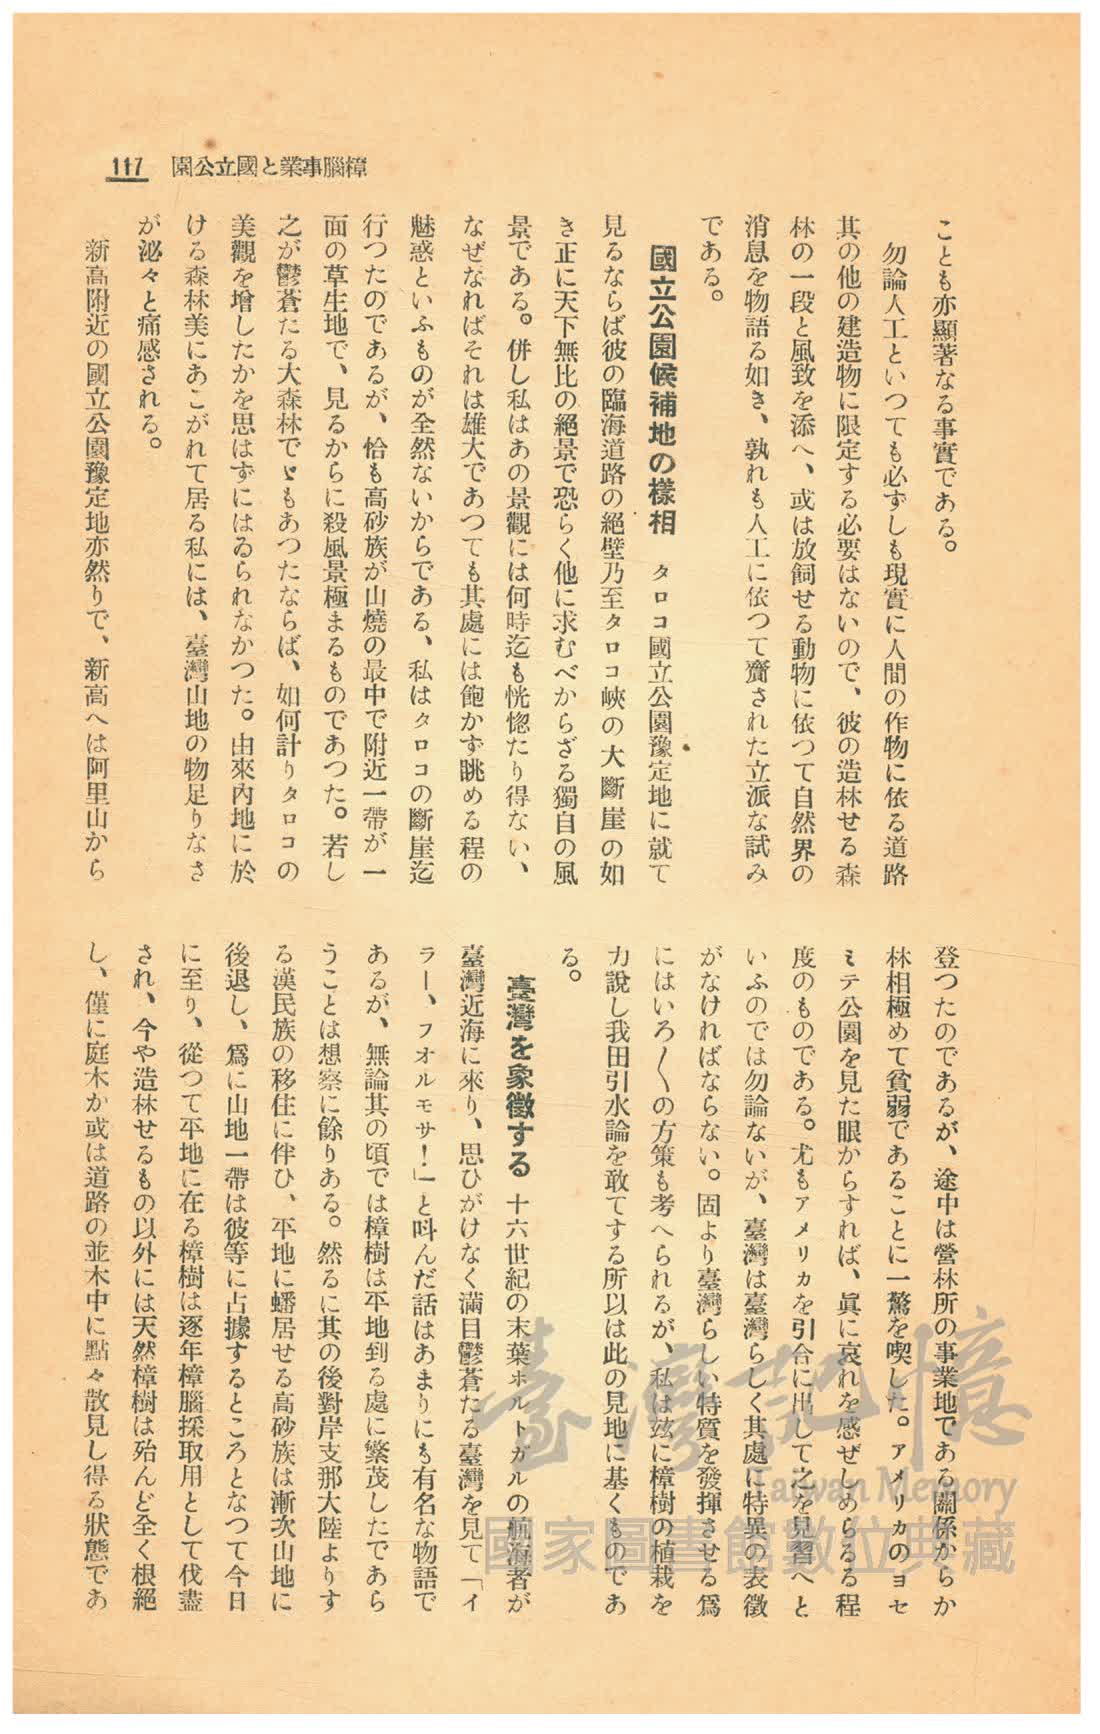 樟腦事業と國立公園
117
ことも亦顯著なる事實である。
勿論人工といつても必ずしも現實に人間の作物に依る道路
其の他の建造物に限定する必要はないので、彼の造林せる森
林の一段と風致を添へ、或は放飼せる動物に依つて自然界の
消息を物語る如き、孰れも人工に依つて齎された立派な試み
である。
國立公園候補地の樣相　タロコ國立公園豫定地に就て
見るならば彼の臨海道路の絕壁乃至タロコ峽の大斷崖の如
き正に天下無比の絕景で恐らく他に求むべからざる獨自の風
景である。併し私はあの景觀には何時迄も恍惚たり得ない、
なぜなればそれは雄大であつても其處には飽かず眺める程の
魅惑といふものが全然ないからである、私はタロコの斷崖迄
行つたのであるが、恰も高砂族が山燒の最中で附近一帶が一
面の草生地で、見るからに殺風景極まるものであつた。若し
之が鬱蒼たる大森林でゞもあつたならば、如何計りタロコの
美觀を增したかを思はずにはゐられなかつた。由來內地に於
ける森林美にあこがれて居る私には、臺灣山地の物足りなさ
が泌々と痛感される。
新高附近の國立公園豫定地亦然りで、新高へは阿里山から
登つたのであるが、途中は營林所の事業地である關係からか
林相極めて貧弱であることに一驚を喫した。アメリカのヨセ
ミテ公園を見た眼からすれば、眞に哀れを感ぜしめらるる程
度のものである。尤もアメリカを引合に出して之を見習へと
いふのでは勿論ないが、臺灣は臺灣らしく其處に特異の表徵
がなければならない。固より臺灣らしい特質を發揮させる爲
にはいろ〱の方策も考へられるが、私は玆に樟樹の植栽を
力說し我田引水論を敢てする所以は此の見地に基くものであ
る。
臺灣を象徵する　十六世紀の末葉ホルトガルの航海者が
臺灣近海に來り、思ひがけなく滿目鬱蒼たる臺灣を見て「イ
ラー、フオルモサ！」と呌んだ話はあまりにも有名な物語で
あるが、無論其の頃では樟樹は平地到る處に繁茂したであら
うことは想察に餘りある。然るに其の後對岸支那大陸よりす
る漢民族の移住に伴ひ、平地に蟠居せる高砂族は漸次山地に
後退し、爲に山地一帶は彼等に占據するところとなつて今日
に至り、從つて平地に在る樟樹は逐年樟腦採取用として伐盡
され、今や造林せるもの以外には天然樟樹は殆んど全く根絕
し、僅に庭木か或は道路の並木中に點々散見し得る狀態であ
臺灣記憶
Taiwan Memory
國家圖書館數位典藏